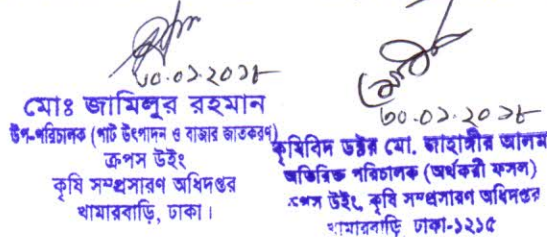 ৩০.০১.২০১৮
মোঃ জামিলুর রহমান
উপ-পরিচালক (পাট উৎপাদন ও বাজার জাতকরণ)
ক্রপস উইং
কৃষি সম্প্রসারণ অধিদপ্তর
খামারবাড়ি, ঢাকা।
৩০.০১.২০১৮
কৃষিবিদ ডক্টর মো. জাহাঙ্গীর আলম
অতিরিক্ত পরিচালক (অর্থকরী ফসল)
ক্রপস উইং, কৃষি সম্প্রসারণ অধিদপ্তর
খামারবাড়ি, ঢাকা-১২১৫